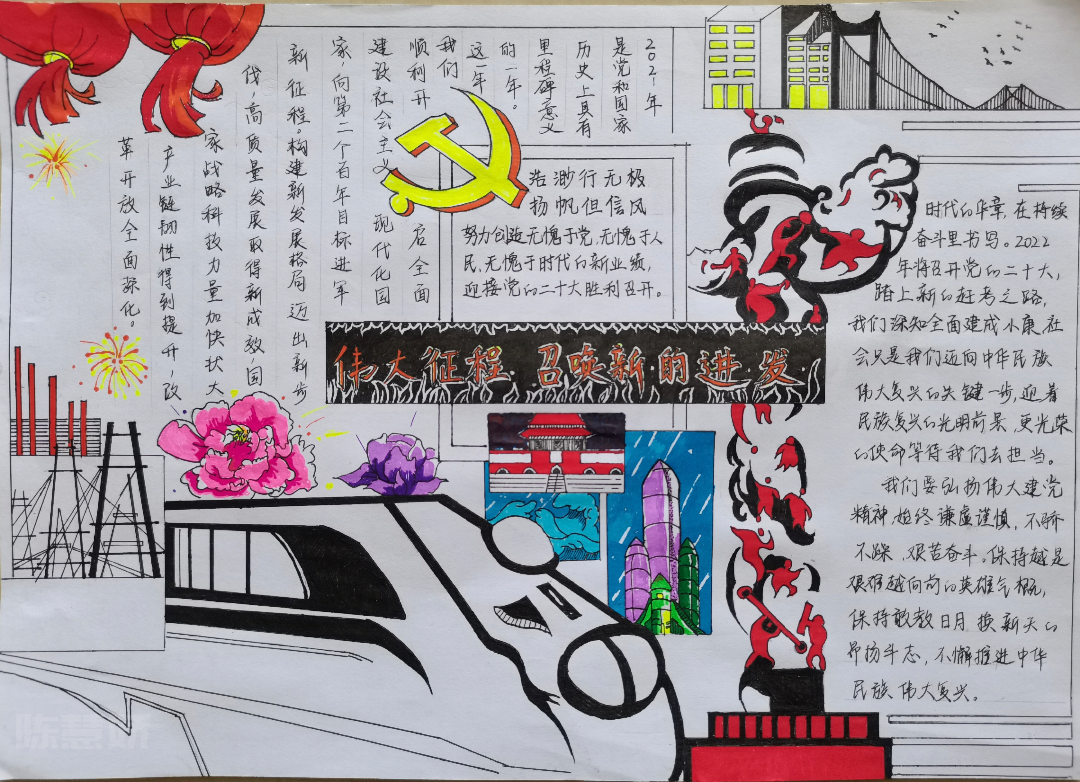 2021年
是党和国家
历史上具有
里程碑意义
的一年。
这一年
我们
顺利开启全面
建设社会主义现代化国
家、向第二个百年目标进军
新征程。构建新发展格局迈出新步
伐,高质量发展取得新成效国
家战略科技力量加快壮大
产业链韧性得到提升,改
革开放全面深化。
浩渺行无极
扬帆但信风
努力创造无愧于党,无愧于人
民、无愧于时代的新业绩,
迎接党的二十大胜利召开。
伟大征程 召唤新的进发
时代的华章,在持续
奋斗里书写。2022
年将召开党的二十大,
踏上新的赶考之路,
我们深知全面建成小康社
会只是我们迈向中华民族
伟大复兴的关键一步,迎着
民族复兴的光明前景、更光荣
的使命等待我们去担当。
我们要弘扬伟大建党
精神,始终谦虚谨慎,不骄
不躁、艰苦奋斗。保持越是
艰难越向前的英雄气概,
保持敢教日月换新天的
昂扬斗志,不懈推进中华
民族伟大复兴。
陈慧妍